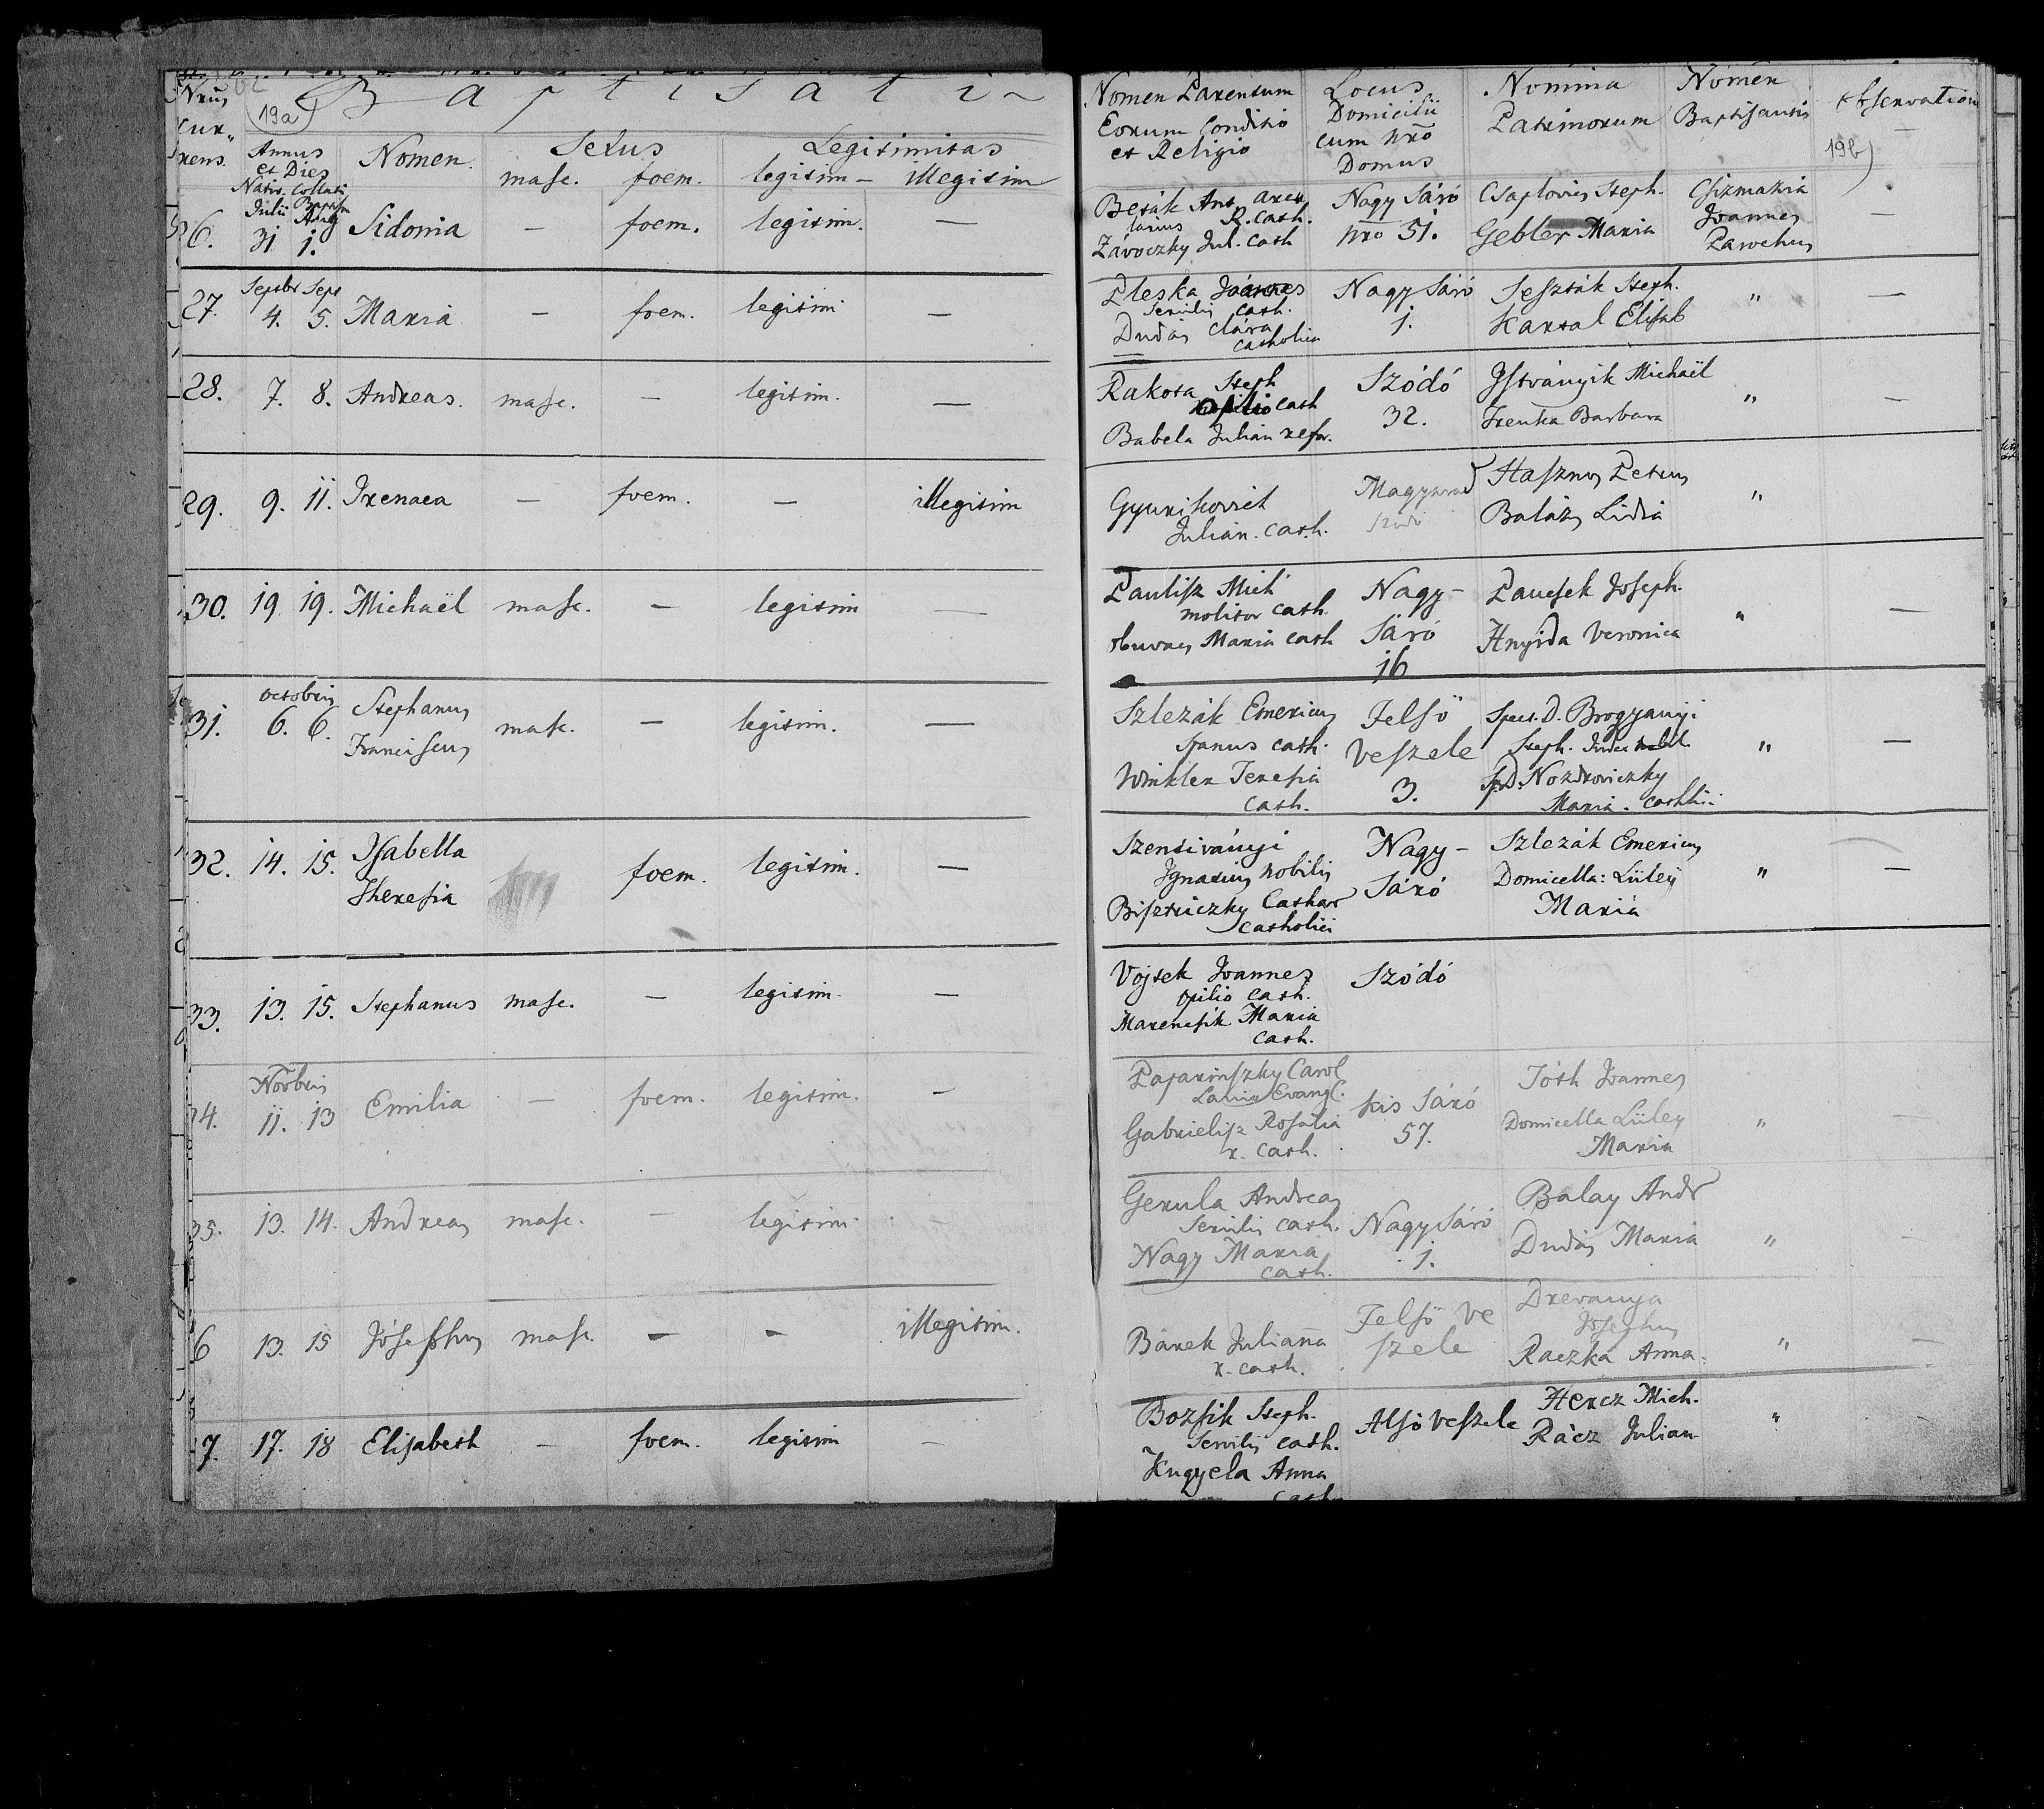 Nrus
Cur-
rens.
19a)
B a p t i s a t i
Annus
et Dies
Nativ. Collati
Baptism
Nomen.
Sexus
masc. foem.
Legitimitas
legitim – illegitim
Nomen Parentum
Eorum Conditio
et Religio
Locus
Domicilii
cum Nrō
Domus
Nomina
Patrinorum
Nomen
Baptisantis
Observationes
19b)
Julii Aug
26. 31 1. Sidonia — foem. legitim. —
Besák Ant. aren
larius R. Cath.
Závoczky Jul. Cath
Nagy Sáró
Nro 51.
Csaplovics Steph.
Gebler Maria
Csizmazia
Joannes
Parochus
—
Septbr Sept
27. 4. 5. Maria — foem. legitim —
Pleska Joannes
Servilis Cath.
Dudás Clára
Catholica
Nagy Sáró
1.
Seszták Steph.
Kartal Elisab
" —
28. 7. 8. Andreas. masc. — legitim. —
Rakota Steph
opilio Cath
Babela Julian refor.
Szódó
32.
Istványik Michaël
Trenka Barbara
" —
29. 9. 11. Irenaea — foem. — illegitim
Gyurikovich
Julian. Cath.
Magyarad
Szodó
Hasznos Petrus
Balázs Lidia
"
30. 19 19. Michaël masc. — legitim —
Paulisz Mich
molitor Cath.
Maria Cath
Nagy-
Sáró
16
Paucsek Joseph.
Hnyida Veronica
" —
Octobris
31. 6. 6. Stephanus
Franciscus
masc. — legitim. —
Szlezák Emericus
Spanus Cath.
Winkler Teresia
Cath.
Felső
Veszele
3.
Spect. D. Brogyanyi
Steph. Judex Nobil.
Sp.D. Nozdroviczky
Maria. Cathlici
" —
32. 14. 15. Isabella
Theresia
foem. legitim. —
Szentiványi
Ignatius Nobilis
Bisztriczky Cathar
Catholici
Nagy-
Sáró
Szlezák Emericus
Domicella: Lüley
Maria
" —
33. 13. 15. Stephanus masc. — legitim. —
Vojtek Joannes
opilio Cath.
Marencsik Maria
Cath.
Szódó
Novbris
34. 11. 13 Emilia — foem. legitim. —
Pajarinszky Carol
Lanio Evangl.
Gabrielisz Rosalia
r. Cath.
Kis Sáró
57.
Tóth Joannes
Domicella Lüley
Maria
" —
35. 13. 14. Andreas masc. — legitim. —
Gerula Andreas
Servilis Cath.
Nagy Maria
Cath.
Nagy Sáró
1.
Balay Andr
Dudás Maria
" —
36 13. 15 Jósephus masc. — — illegitim.
Bárek Julianna
r. Cath.
Felső Ve
szele
Drevanya
Josephus
Raczka Anna.
" —
37. 17. 18 Elisabeth — foem. legitim —
Bozsik Steph.
Servilis Cath.
Kugyela Anna
Cath.
Alsó Veszele
Hercz Mich.
Rácz Julian
"